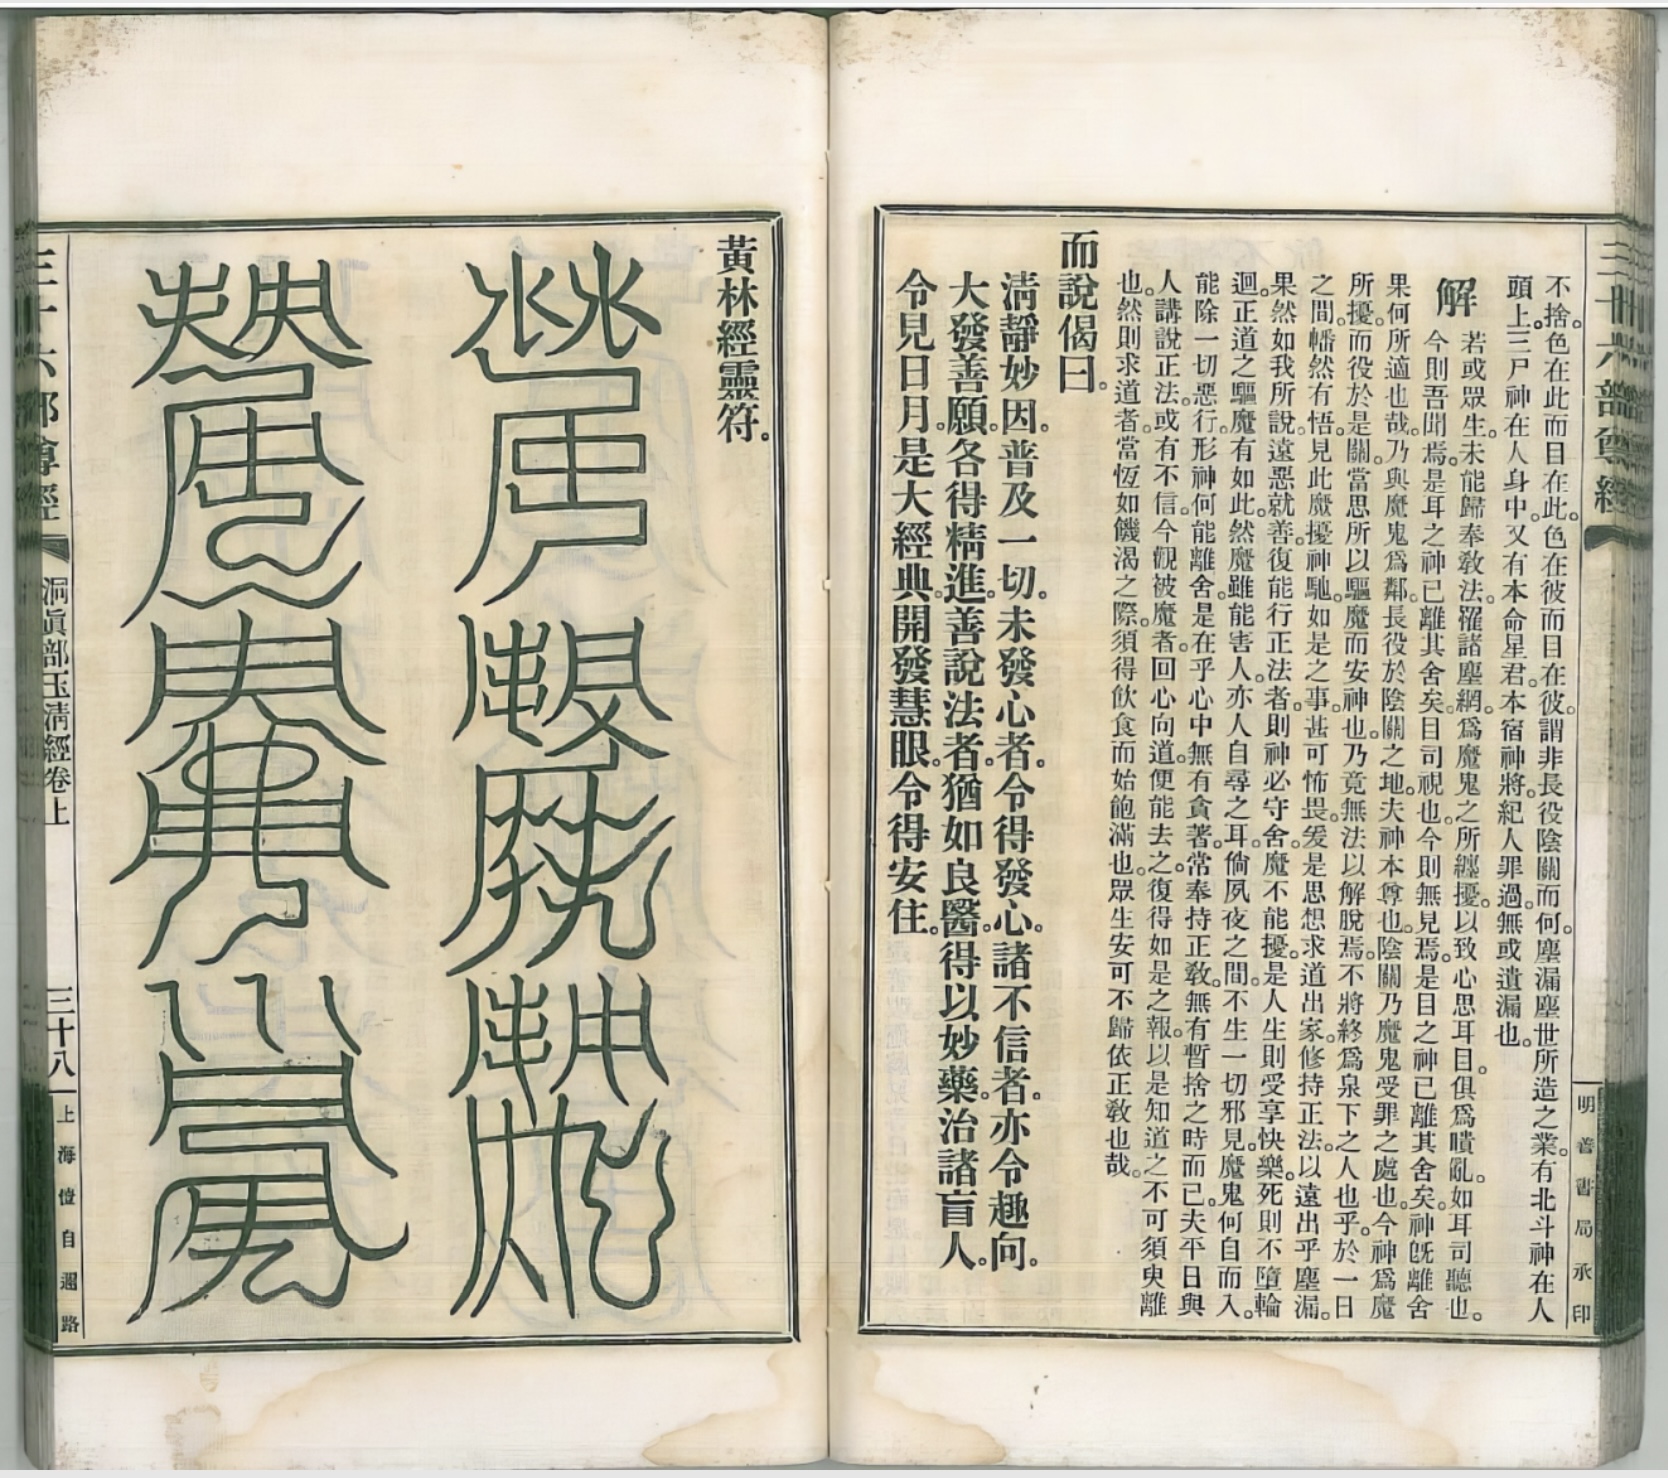 三十六部尊經
明善書局承印
不捨。色在此而目在此。色在彼而目在彼。謂非長役陰關而何。塵漏塵世所造之業。有北斗神在人
頭上。三尸神在人身中。又有本命星君。本宿神將。紀人罪過。無或遺漏也。
解
若或眾生。未能歸奉教法。羅諸塵網。爲魔鬼之所纏擾。以致心思耳目。俱爲瞶亂。如耳司聽也。
今則吾聞焉。是耳之神已離其舍矣。目司視也。今則無見焉。是目之神已離其舍矣。神既離舍
果何所適也哉。乃與魔鬼爲鄰。長役於陰關之地。夫神本尊也。陰關乃魔鬼受罪之處也。今神爲魔
所擾。而役於是關。當思所以驅魔而安神也。乃竟無法以解脫焉。不將終爲泉下之人也乎。於一日
之間。幡然有悟。見此魔擾神馳。如是之事。甚可怖畏。爰是思想求道出家。修持正法。以遠出乎塵漏。
果然如我所說。遠惡就善。復能行正法者。則神必守舍。魔不能擾。是人生則受享快樂。死則不墮輪
迴。正道之驅魔有如此。然魔雖能害人。亦人自尋之耳。倘夙夜之間。不生一切邪見。魔鬼何自而入。
能除一切惡行。形神何能離舍。是在乎心中無有貪著。常奉持正教。無有暫捨之時而已。夫平日與
人講說正法。或有不信。今觀被魔者。回心向道。便能去之。復得如是之報。以是知道之不可須臾離
也。然則求道者。當恆如饑渴之際。須得飲食而始飽滿也。眾生安可不歸依正教也哉。
而說偈曰。
清靜妙因。普及一切。未發心者。令得發心。諸不信者。亦令趣向。
大發善願。各得精進。善說法者。猶如良醫。得以妙藥。治諸盲人。
令見日月。是大經典。開發慧眼。令得安住。
黃林經靈符。
三十六部尊經
洞眞部玉清經卷上
三十八
上海愷自邇路